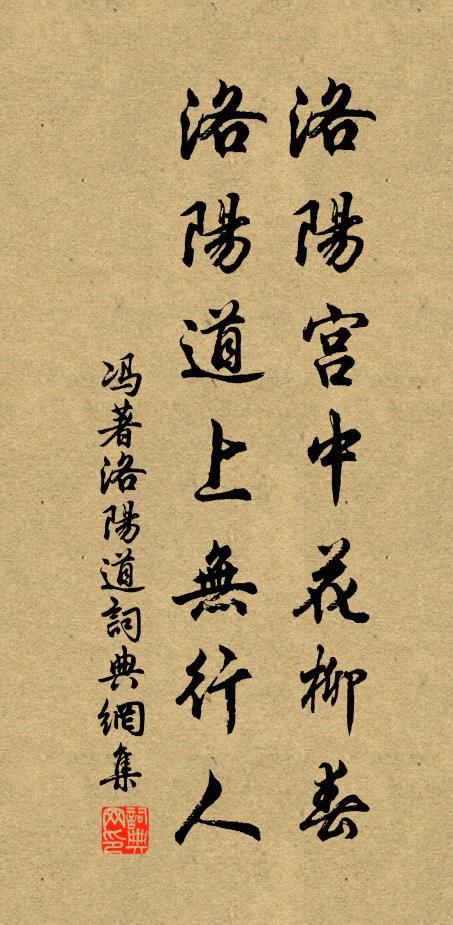 洛陽宮中花柳春
洛陽道上無行人
冯著洛陽道詞典網集
詞典网印